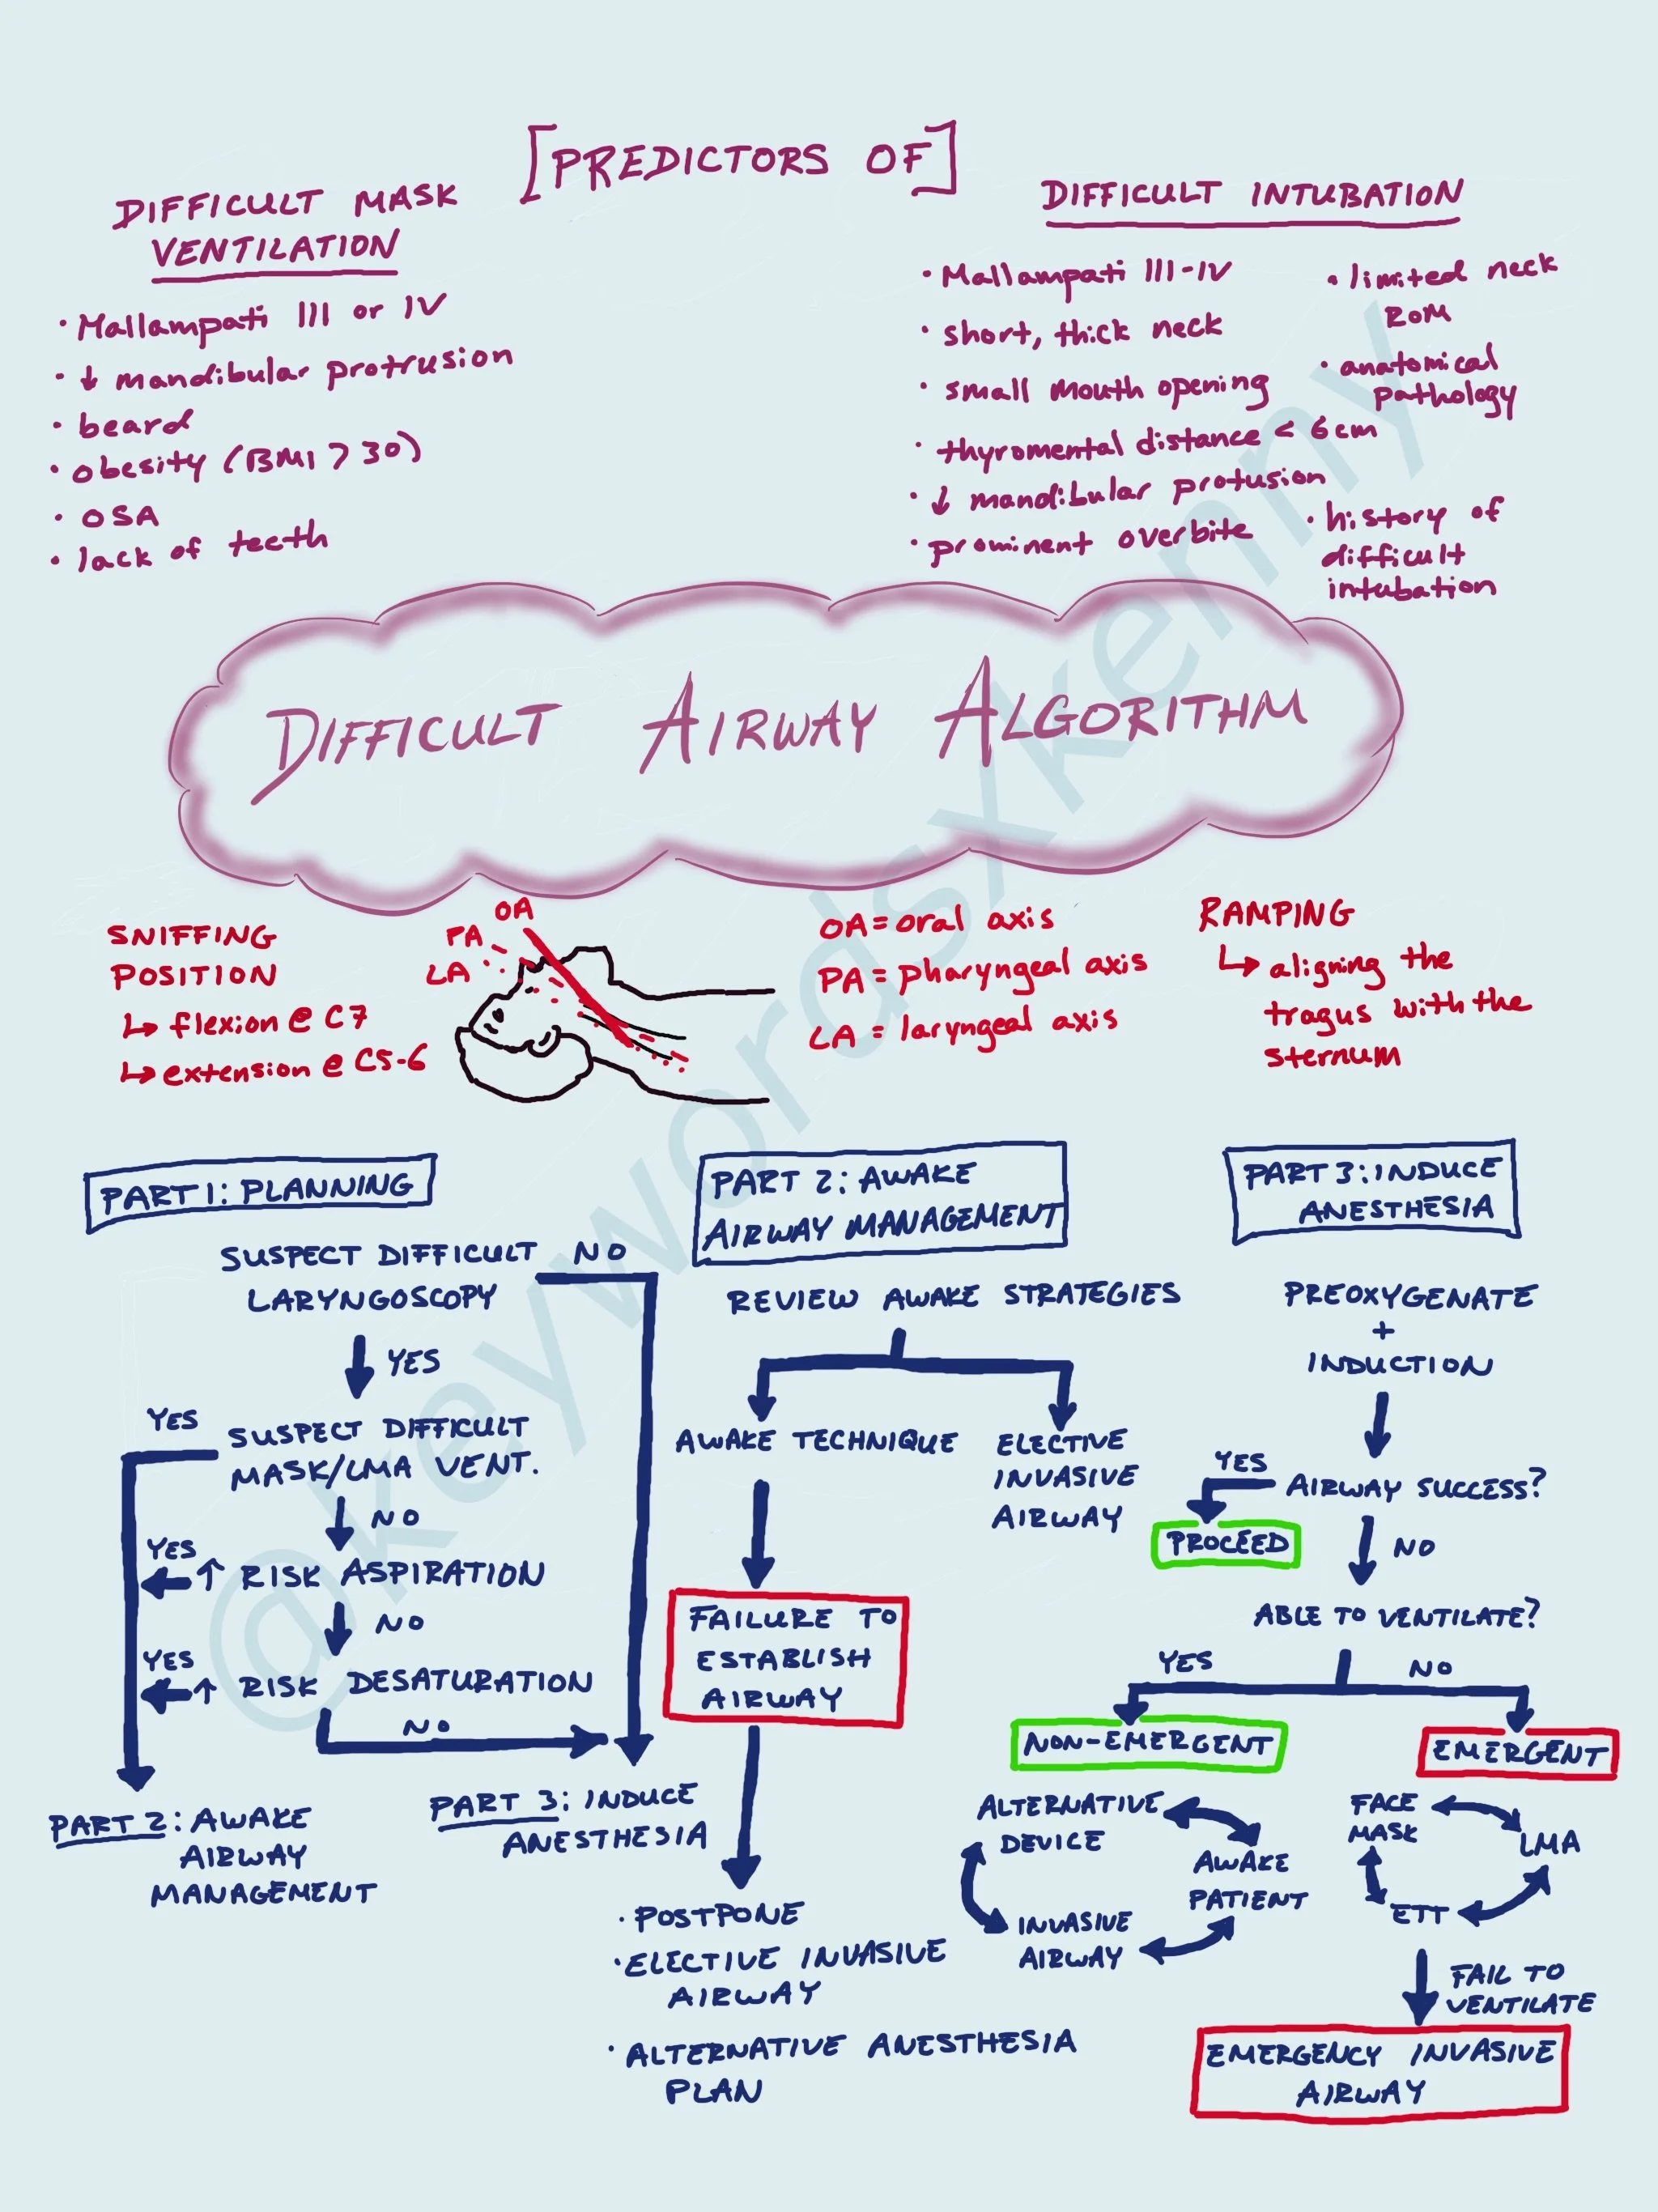 [PREDICTORS OF]
DIFFICULT MASK
VENTILATION
· Mallampati III or IV
· ↓ mandibular protrusion
· beard
· obesity (BMI > 30)
· OSA
· lack of teeth
DIFFICULT INTUBATION
· Mallampati III-IV
· short, thick neck
· small mouth opening
· thyromental distance < 6cm
· ↓ mandibular protusion
· prominent overbite
· limited neck
ROM
· anatomical
pathology
· history of
difficult
intubation
DIFFICULT AIRWAY ALGORITHM
SNIFFING
POSITION
↳ flexion @ C7
↳ extension @ C5-6
OA
PA
LA
OA = oral axis
PA = pharyngeal axis
LA = laryngeal axis
RAMPING
↳ aligning the
tragus with the
sternum
PART 1: PLANNING
SUSPECT DIFFICULT
LARYNGOSCOPY
NO
YES
SUSPECT DIFFICULT
MASK/LMA VENT.
YES
NO
↑ RISK ASPIRATION
YES
NO
↑ RISK DESATURATION
YES
NO
PART 2: AWAKE
AIRWAY
MANAGEMENT
PART 3: INDUCE
ANESTHESIA
PART 2: AWAKE
AIRWAY MANAGEMENT
REVIEW AWAKE STRATEGIES
AWAKE TECHNIQUE
ELECTIVE
INVASIVE
AIRWAY
FAILURE TO
ESTABLISH
AIRWAY
· POSTPONE
· ELECTIVE INVASIVE
AIRWAY
· ALTERNATIVE ANESTHESIA
PLAN
PART 3: INDUCE
ANESTHESIA
PREOXYGENATE
+
INDUCTION
AIRWAY SUCCESS?
YES
PROCEED
NO
ABLE TO VENTILATE?
YES
NO
NON-EMERGENT
ALTERNATIVE
DEVICE
AWAKE
PATIENT
INVASIVE
AIRWAY
EMERGENT
FACE
MASK
LMA
ETT
FAIL TO
VENTILATE
EMERGENCY INVASIVE
AIRWAY
@keywordsxkenny